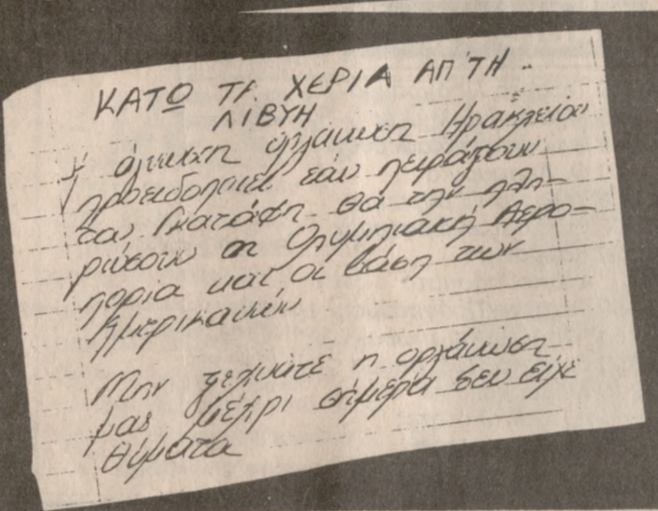 ΚΑΤΩ ΤΑ ΧΕΡΙΑ ΑΠ'ΤΗ
ΛΙΒΥΗ
οργάνωση Ηρακλείου
προειδοποιεί εάν πειράξουν
τον Γκατάφη θα την πλη-
ρώσουν οι Ολυμπιακή Αερο-
πορια και οι βάση των
Αμερικανών
Μην ξεχνάτε η οργάνωση
μας μέχρι σήμερα δεν είχε
θύματα